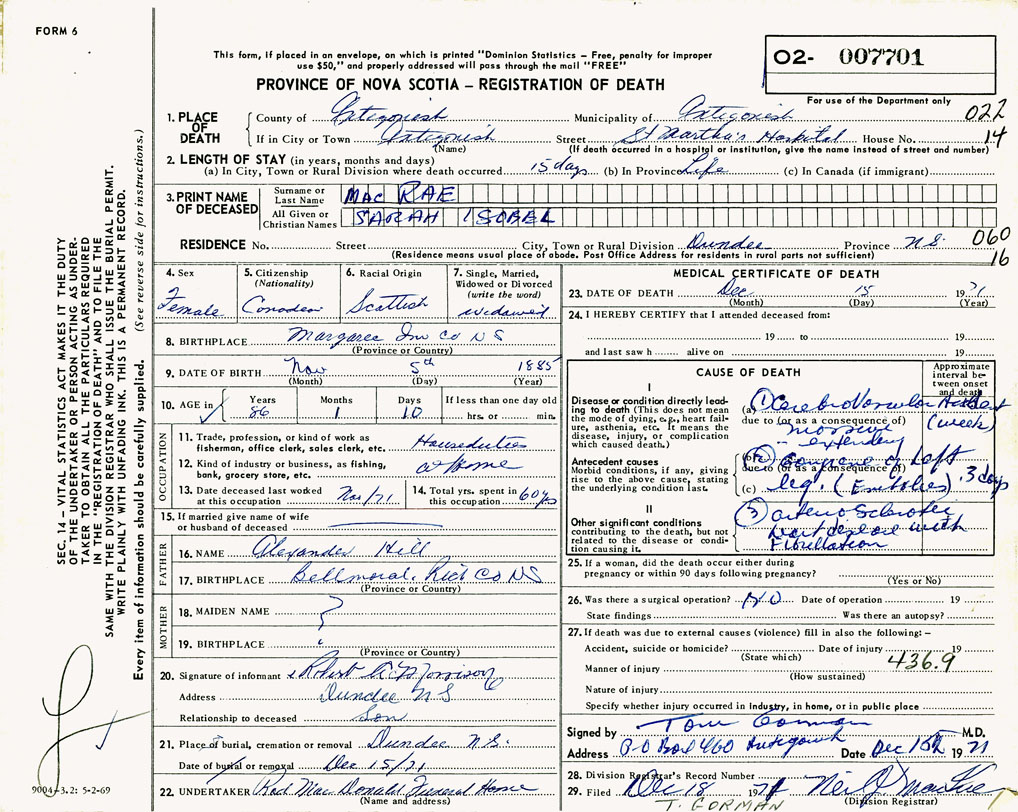 FORM 6
This form, if placed in an envelope, on which is printed "Dominion Statistics – Free, penalty for improper
use $50," and properly addressed will pass through the mail "FREE"
PROVINCE OF NOVA SCOTIA – REGISTRATION OF DEATH
02- 007701
For use of the Department only
022
14
1. PLACE OF DEATH
County of Antigonish Municipality of Antigonish
If in City or Town Antigonish Street St Martha's Hospital House No.
(Name) (If death occurred in a hospital or institution, give the name instead of street and number)
2. LENGTH OF STAY (in years, months and days)
(a) In City, Town or Rural Division where death occurred 15 days (b) In Province Life (c) In Canada (if immigrant)
3. PRINT NAME OF DECEASED
Surname or Last Name MAC RAE
All Given or Christian Names SARAH ISOBEL
RESIDENCE No. Street City, Town or Rural Division Dundee Province N.S.
060
16
(Residence means usual place of abode. Post Office Address for residents in rural parts not sufficient)
4. Sex Female
5. Citizenship (Nationality) Canadian
6. Racial Origin Scottish
7. Single, Married, Widowed or Divorced (write the word) widowed
8. BIRTHPLACE Margaree Inv Co N S
(Province or Country)
9. DATE OF BIRTH Nov 5th 1885
(Month) (Day) (Year)
10. AGE in Years 86 Months 1 Days 10 If less than one day old hrs. or min.
OCCUPATION
11. Trade, profession, or kind of work as fisherman, office clerk, sales clerk, etc. Houseduties
12. Kind of industry or business, as fishing, bank, grocery store, etc. at Home
13. Date deceased last worked at this occupation Nov/71
14. Total yrs. spent in this occupation 60 yrs
15. If married give name of wife or husband of deceased
FATHER
16. NAME Alexander Hill
17. BIRTHPLACE Bellmoral, Rich Co NS
(Province or Country)
MOTHER
18. MAIDEN NAME ?
19. BIRTHPLACE
(Province or Country)
20. Signature of informant Robert Morrison
Address Dundee N S
Relationship to deceased Son
21. Place of burial, cremation or removal Dundee N.S.
Date of burial or removal Dec 15/71
22. UNDERTAKER Rod Mac Donald Funeral Home
(Name and address)
MEDICAL CERTIFICATE OF DEATH
23. DATE OF DEATH Dec 15 1971
(Month) (Day)
24. I HEREBY CERTIFY that I attended deceased from:
19 to 19
and last saw h alive on 19
CAUSE OF DEATH
Approximate interval between onset and death
I
Disease or condition directly leading to death (This does not mean the mode of dying, e.g., heart failure, asthenia, etc. It means the disease, injury, or complication which caused death.)
(a) (1) Cerebrovascular
due to (or as a consequence of)
massive (week)
extending
Antecedent causes
Morbid conditions, if any, giving rise to the above cause, stating the underlying condition last.
(b) (2) Gangrene of Left
due to (or as a consequence of)
(c) leg. (Embolies) 3 days
II
Other significant conditions contributing to the death, but not related to the disease or condition causing it.
(3) arterio Sclerotic
heart disease with
Fibrillation
25. If a woman, did the death occur either during pregnancy or within 90 days following pregnancy?
(Yes or No)
26. Was there a surgical operation? NO Date of operation 19
State findings Was there an autopsy?
27. If death was due to external causes (violence) fill in also the following: –
Accident, suicide or homicide? Date of injury 19
(State which)
436.9
Manner of injury
(How sustained)
Nature of injury
Specify whether injury occurred in industry, in home, or in public place
Signed by Tom Gorman M.D.
Address P O Box 460 Antigonish Date Dec 15th 1971
28. Division Registrar's Record Number
29. Filed Dec 18 1971
(Division Registrar)
T. GORMAN
SEC. 14 – VITAL STATISTICS ACT MAKES IT THE DUTY
OF THE UNDERTAKER OR PERSON ACTING AS UNDERTAKER TO OBTAIN ALL THE PARTICULARS REQUIRED
IN THE "REGISTRATION OF DEATH" AND TO FILE THE
SAME WITH THE DIVISION REGISTRAR WHO SHALL ISSUE THE BURIAL PERMIT.
WRITE PLAINLY WITH UNFADING INK. THIS IS A PERMANENT RECORD.
Every item of information should be carefully supplied. (See reverse side for instructions.)
9004-3.2: 5-2-69